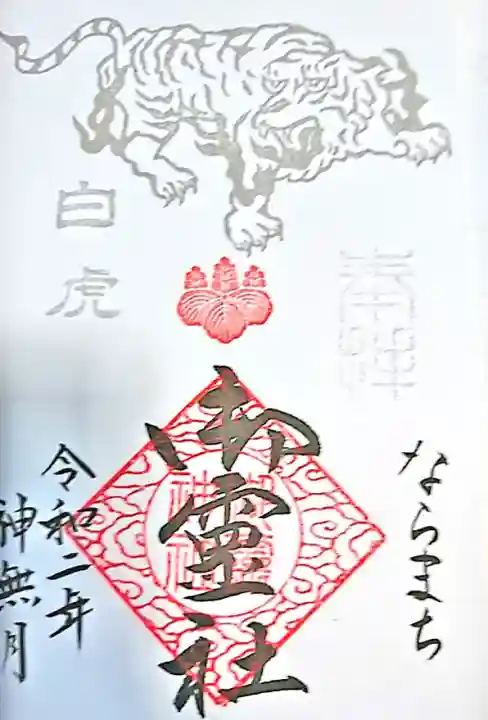 白虎
奉拝
ならまち
御霊社
御霊神社
令和二年
神無月